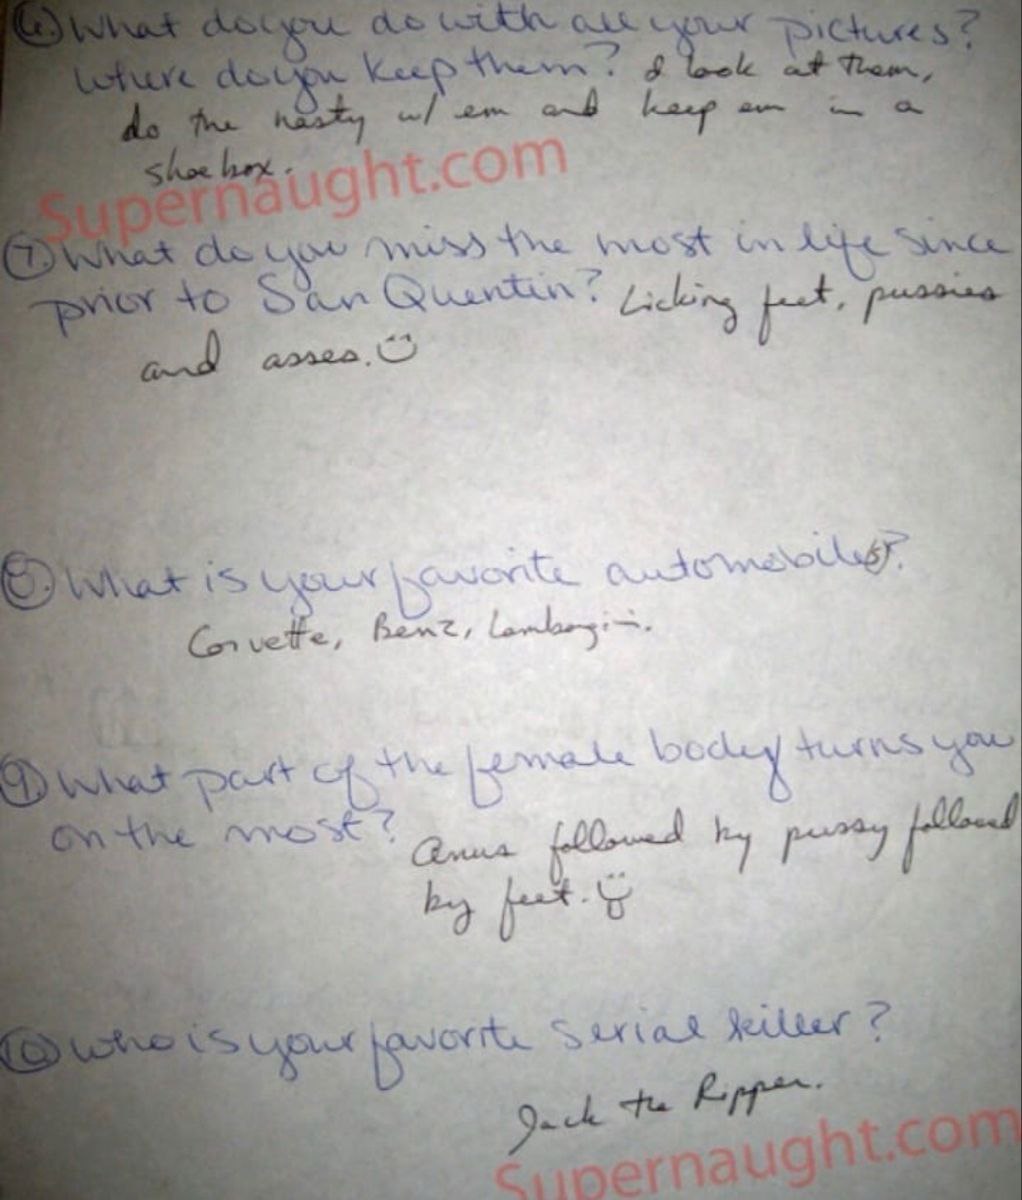 6. What do you do with all your pictures?
Where do you keep them? I look at them,
do the nasty w/ em and keep em in a
shoe box.
Supernaught.com
7 What do you miss the most in life since
prior to San Quentin? Licking feet, pussies
and asses.
8. What is your favorite automobile(s)?
Corvette, Benz,
9 What part of the female body turns you
on the most? Anus followed by pussy followed
by feet.
10 Who is your favorite serial killer?
Jack the Ripper.
Supernaught.com